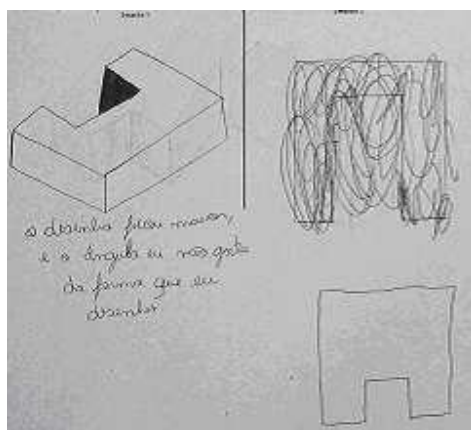 o desenho ficou maior,
e o ângulo eu não gostei
da forma que eu
desenhei